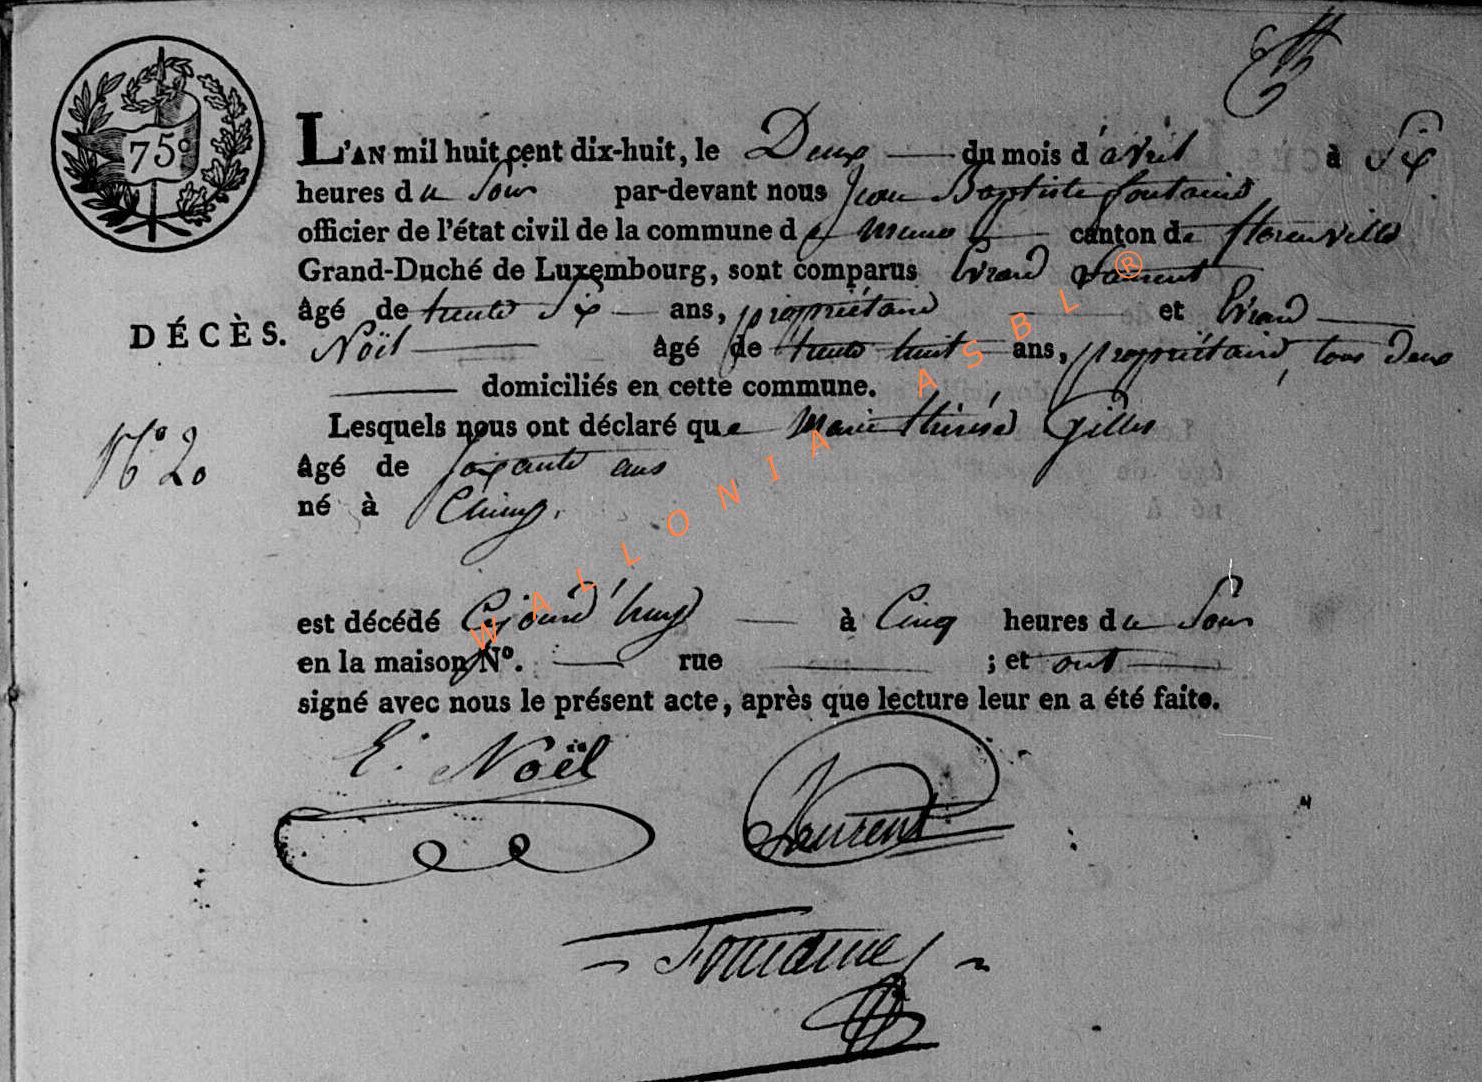 75c
L'AN mil huit cent dix-huit, le Deux du mois d'avril à Six
heures du Soir par-devant nous Jean Baptiste fontaine
officier de l'état civil de la commune de muno canton de florenville
Grand-Duché de Luxembourg, sont comparus Evrard Laurent
âgé de trente Six ans, propriétaire et Evrard
DÉCÈS.
Noël âgé de trente huit ans, propriétaire, tous deux
domiciliés en cette commune.
Lesquels nous ont déclaré que Marie thérése Gilles
N° 20
âgé de soixante ans
né à Chiny.
est décédé Cejourd'huy à Cinq heures du Soir
en la maison N°. rue ; et ont
signé avec nous le présent acte, après que lecture leur en a été faite.
E. Noël
Laurent
Fontaine
WALLONIA ASBL ®